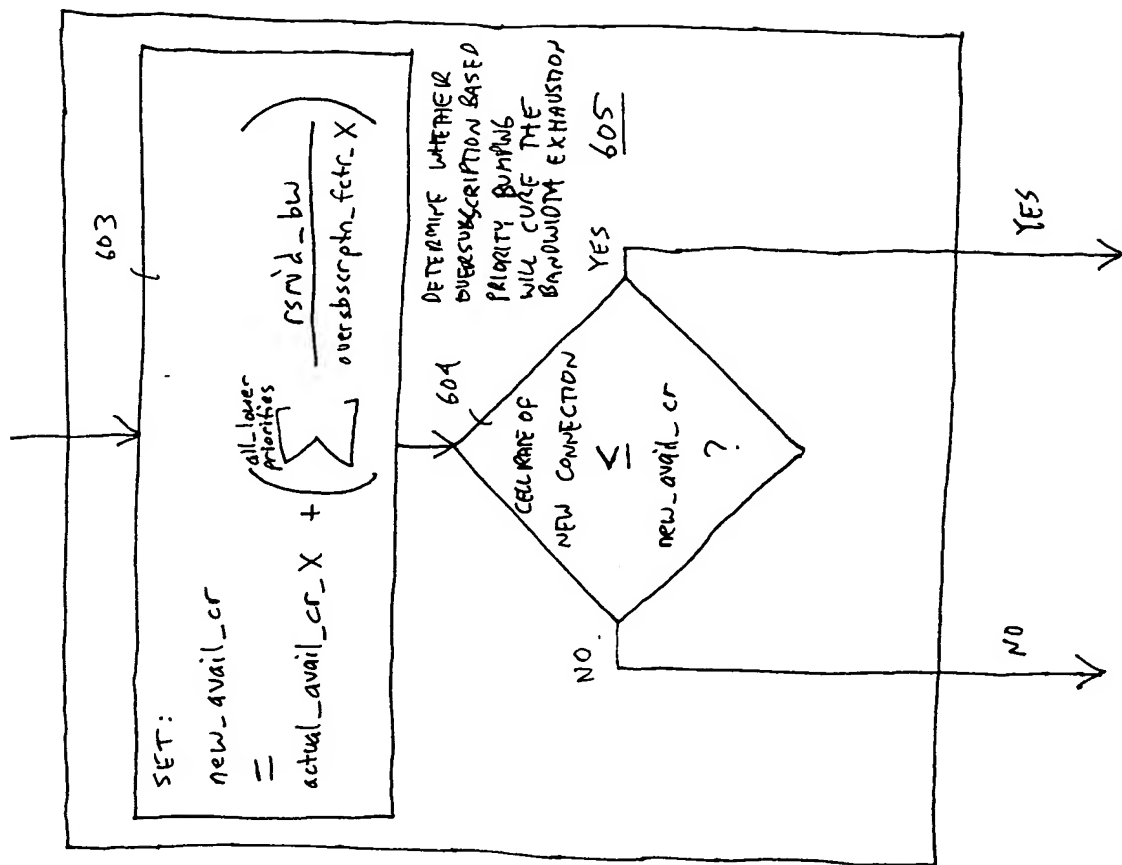 603
SET:
new_avail_cr
=
actual_avail_cr_X + ( all_lower
priorities
Σ rsrv'd_bw
oversbscrptn_fctr_X )
DETERMINE WHETHER
OVERSUBSCRIPTION BASED
PRIORITY BUMPING
WILL CURE THE
BANDWIDTH EXHAUSTION
605
604
CELL RATE OF
NEW CONNECTION
≤
new_avail_cr
?
YES
NO.
YES
NO